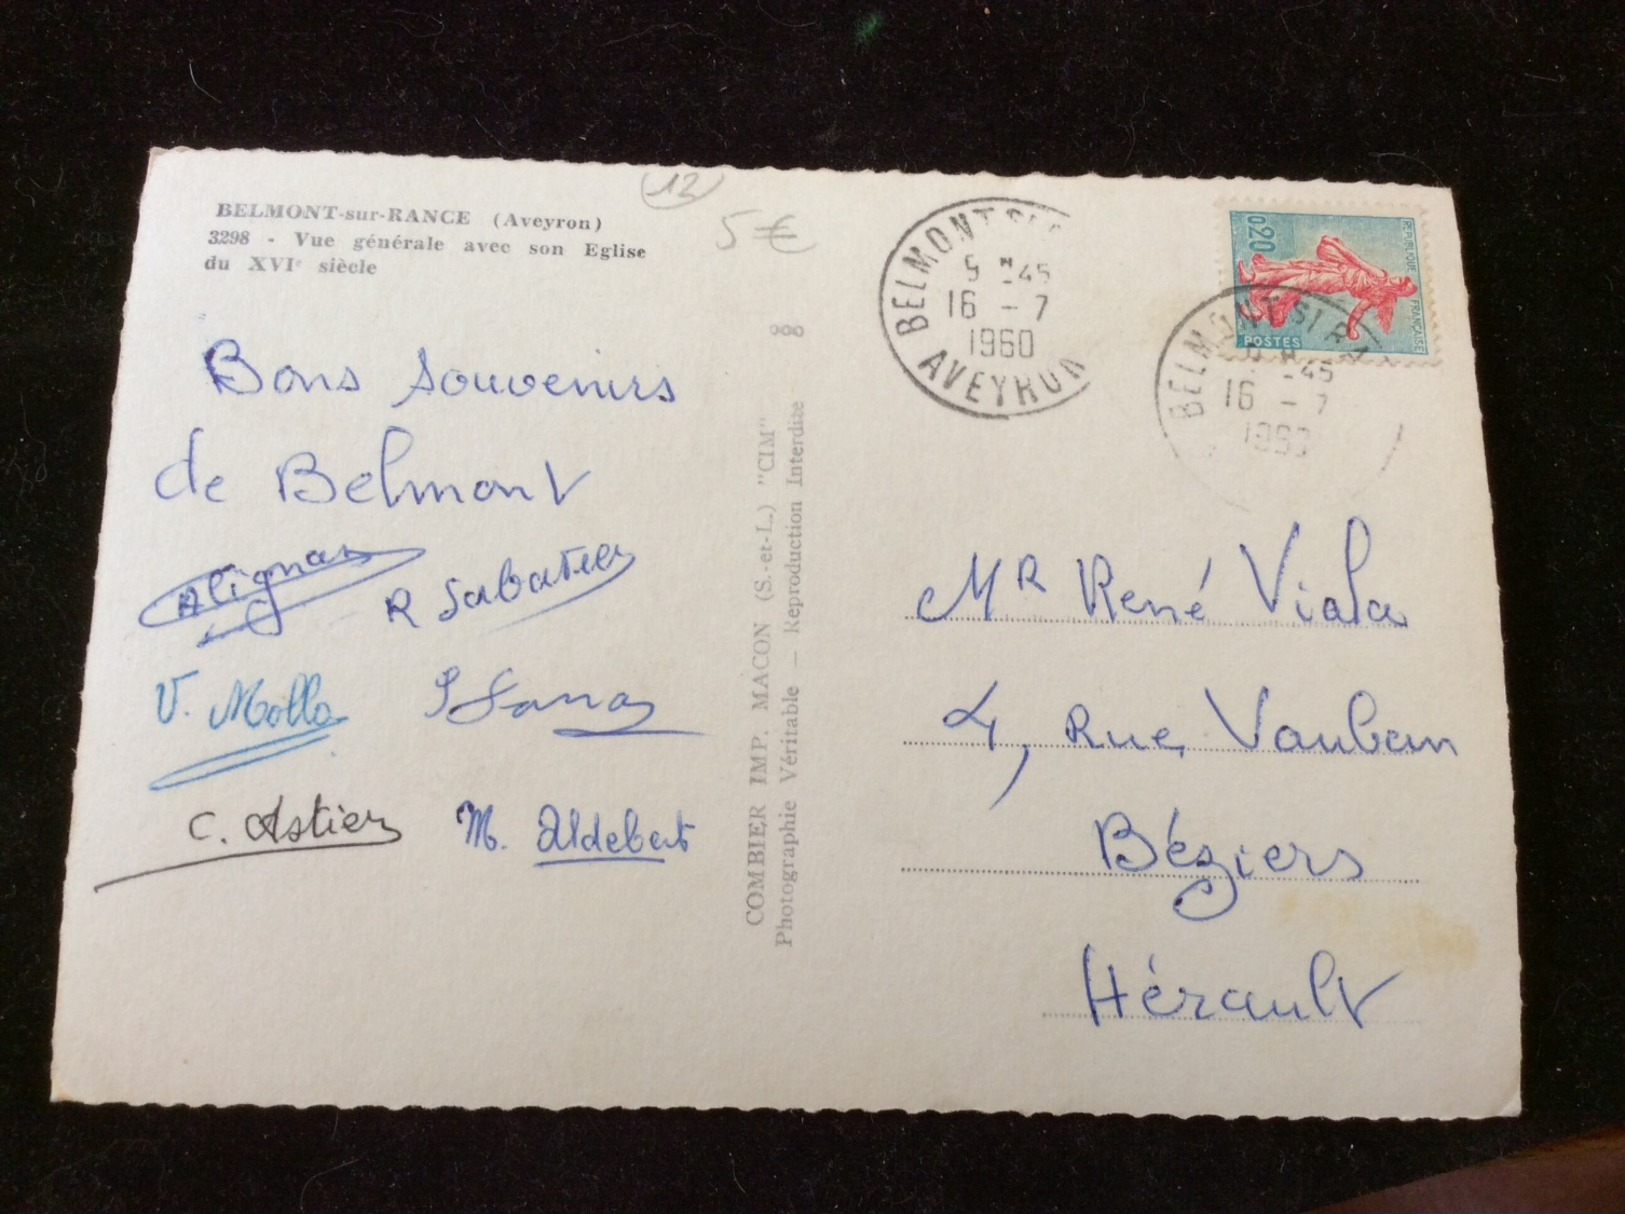 BELMONT-sur-RANCE (Aveyron)
3298 - Vue générale avec son Eglise
du XVIe siècle
12
5€
Bons souvenirs
de Belmont
Alignan
R Sabatier
V. Molla
C. Astier
M. Aldebert
COMBIER IMP. MACON (S.-et-L.) "CIM"
Photographie Véritable — Reproduction Interdite
BELMONT SUR
5 H 45
16 - 7
1960
AVEYRON
0,20
REPUBLIQUE FRANÇAISE
POSTES
BELMONT S/ RA
45
16 - 7
1960
MR René Viala
4, Rue Vauban
Béziers
Hérault